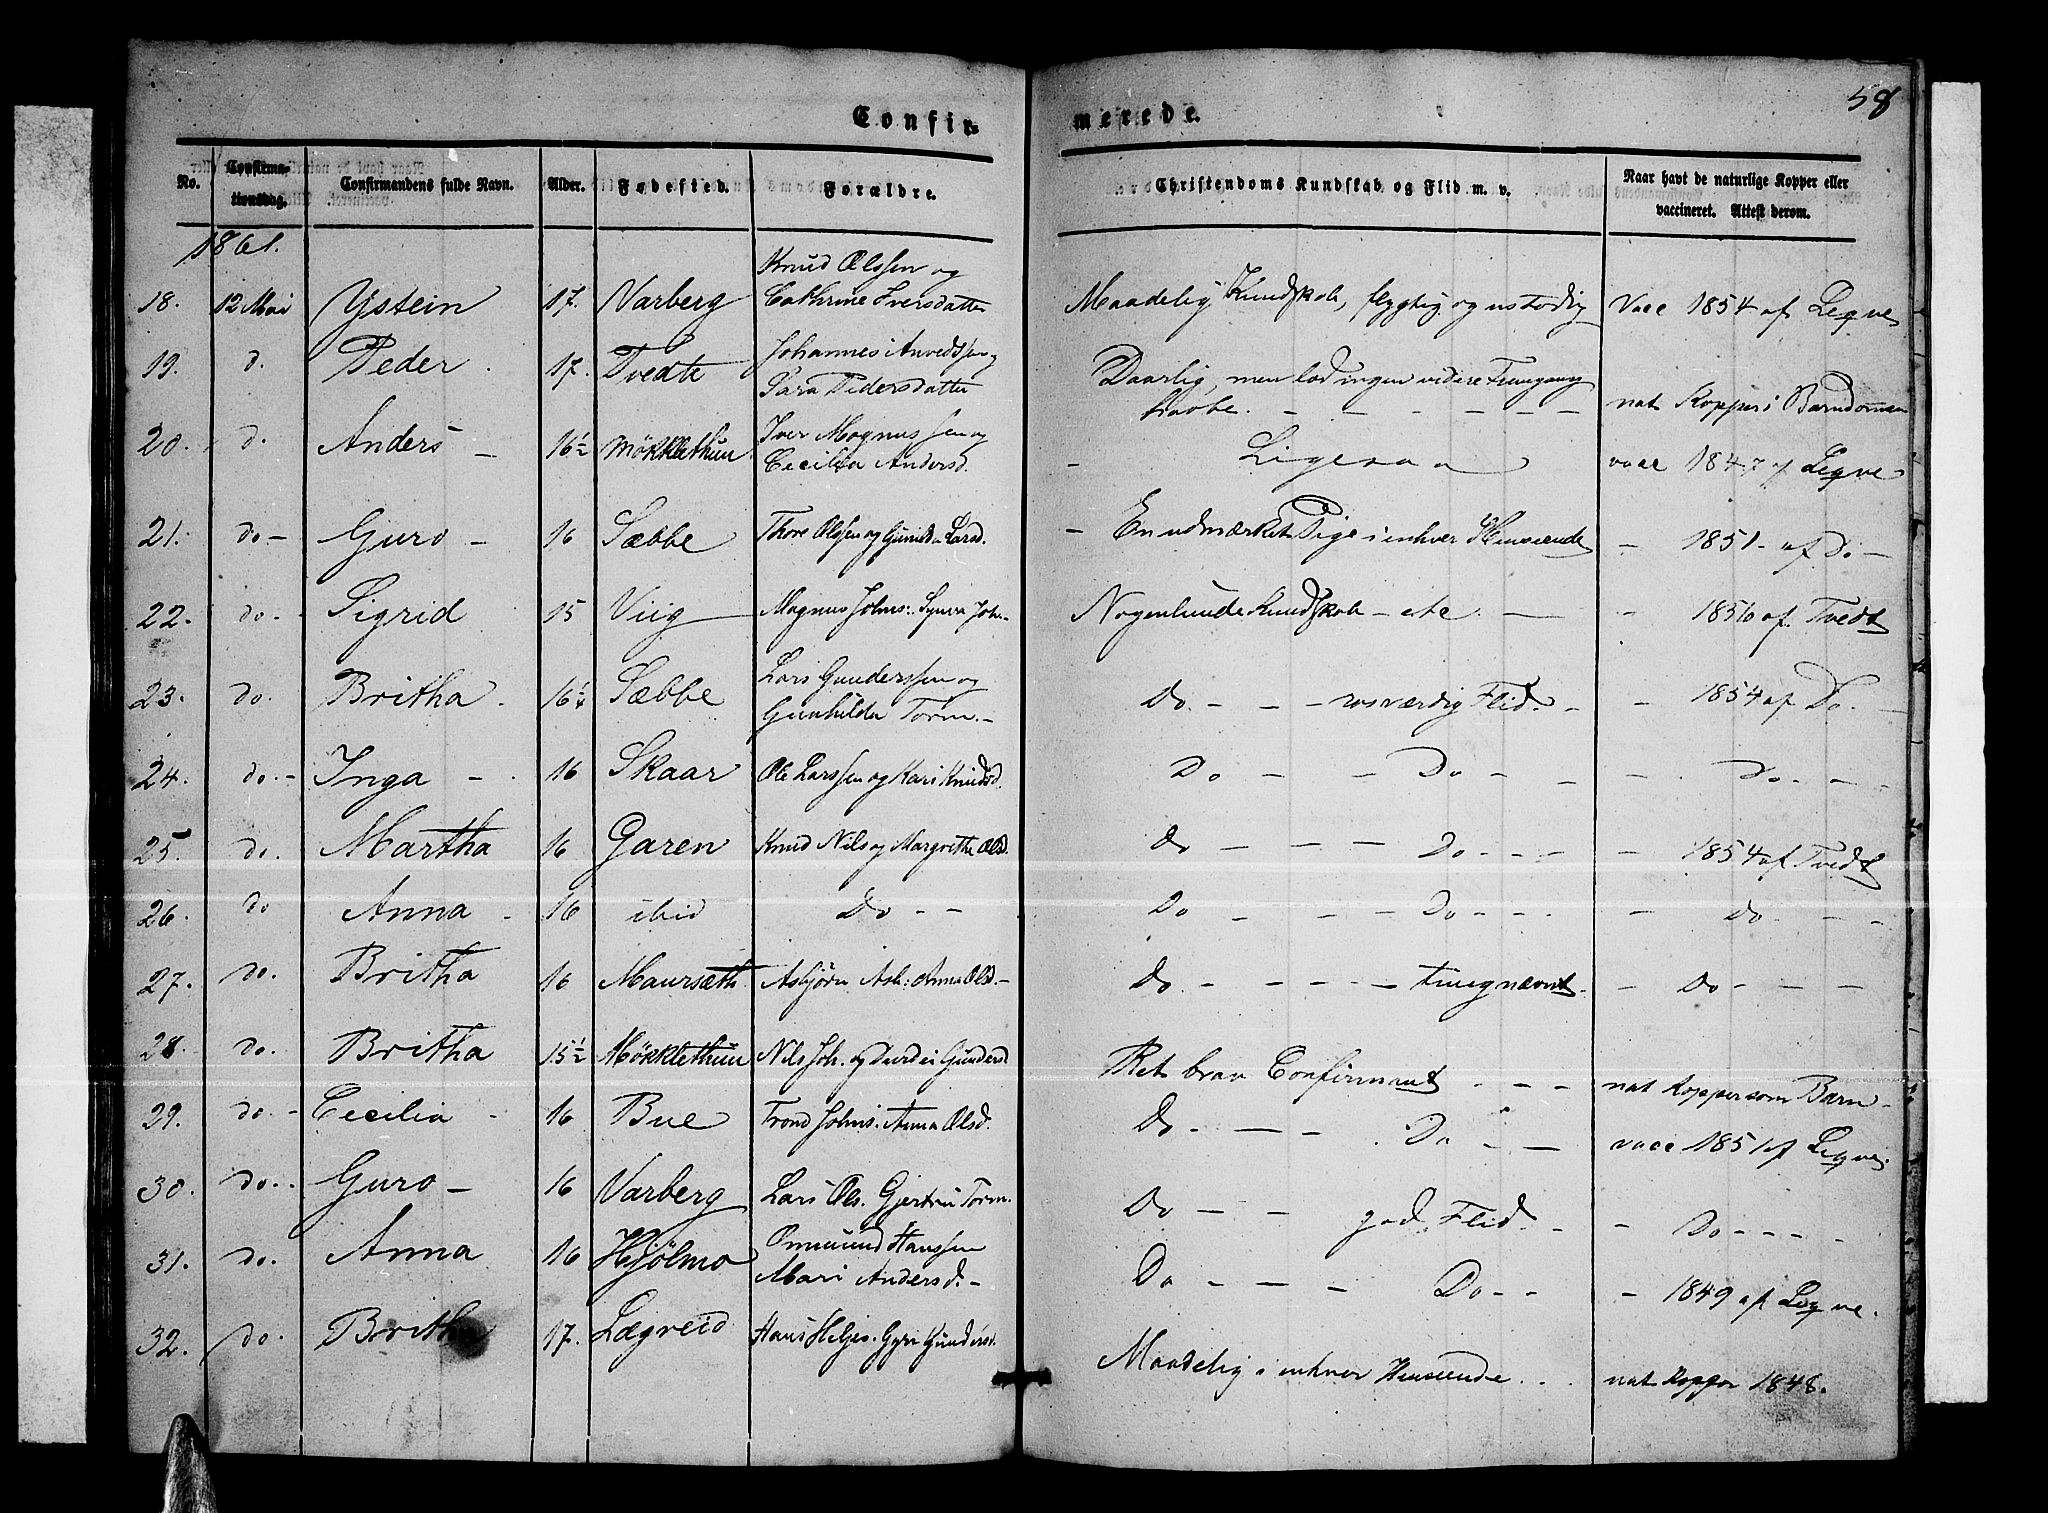 58
Confir- merede.
No. Confirma- Confirmandens fulde Navn. Alder. Fødested. Forældre. Christendoms Kundskab og Flid m. v. Naar havt de naturlige Kopper eller
tionsdag. vaccineret. Attest derom.
1861.
Knud Olssen og
18. 12 Mai Ystein 17. Varberg Cathrine Iversdatter Maadelig Kundskab, flygtig og ustadig vacc 1854 af Legve
Johannes
19. d. Peder 17. Tvedte Sara Pedersdatter Daarlig, men lod ingen videre Fremgang
haabe. — — — — — — nat Kopper i Barndommen
Iver Magnussen og
20. d. Anders — 16½ Mökklethun Cecilia Andersd. — Ligesaa vacc 1847 af Legve
21. do — Guro — 16 Sæbbe Thore Olssen og Gunilda Larsd. — En udmærket Pige i enhver Henseende — 1851 — af Do —
22. do. Sigrid 15 Viig Magnus Johns: Synva Joh— Nogenlunde Kundskab — etc. — — 1856 af Tvedt
Lars Gunderssen og
23. do. Britha 16¼ Sæbbe Gunhilda Torm.— Do. — — — rosværdig Flid. — — 1854 af Do. —
24. do. — Inga — 16 Skaar Ole Larssen og Kari Knudsd. Do — — Do — — — Do. — —
25. do. Martha 16 Garen Knud Nils og Margrethe Olsd. Do — — — Do — — — — 1854 af Tvedt
26. do Anna — 16 ibid Do — — Do — — — Do — — — — Do — —
27. do. Britha 16 Maursæth Asbjörn Asb: Anna Olsd.— Do. — — — — — — Do — — —
28. do. Britha 15½ Mökklethun Nils Joh. og Gunders Ret brav Confirmant — — — nat Kopper som Barn —
29. do. — Cecilia — 16 Bue Trond Johns: Anna Olsd. Do — — — Do — — vacc 1851 af Legve.
30. do. — Guro — 16 Varberg Lars Ols. Gjertru Torm. Do — — god Flid. — — Do — — — —
Omund Hanssen
31. do. Anna 16 Hjölmo Mari Andersd.— Do — — — Do — — — 1849 af Legve.
32. do. Britha 17. Lægreid Hans Helges. Gyri Gundersd. Maadelig i enhver Henseende . . . nat Kopper 1848.